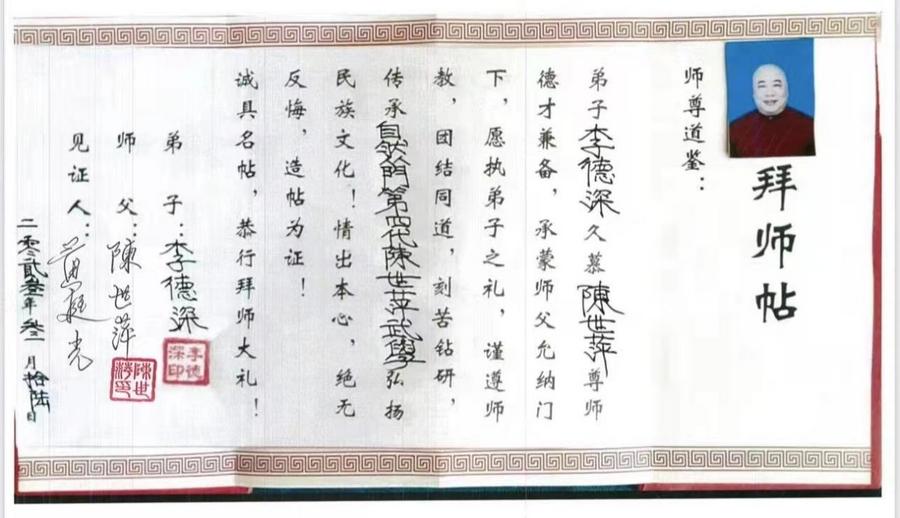 拜师帖
师尊道鉴：
弟子李德深久慕陳世萍尊师
德才兼备，承蒙师父允纳门
下，愿执弟子之礼，谨遵师
教，团结同道，刻苦钻研，
传承自然門第四代陳世萍武學弘扬
民族文化！情出本心，绝无
反悔，造帖为证！
诚具名帖，恭行拜师大礼！
弟子：李德深
李德深印
师父：陳世萍
陳世萍印
见证人：
二零贰叁年叁月拾陆日